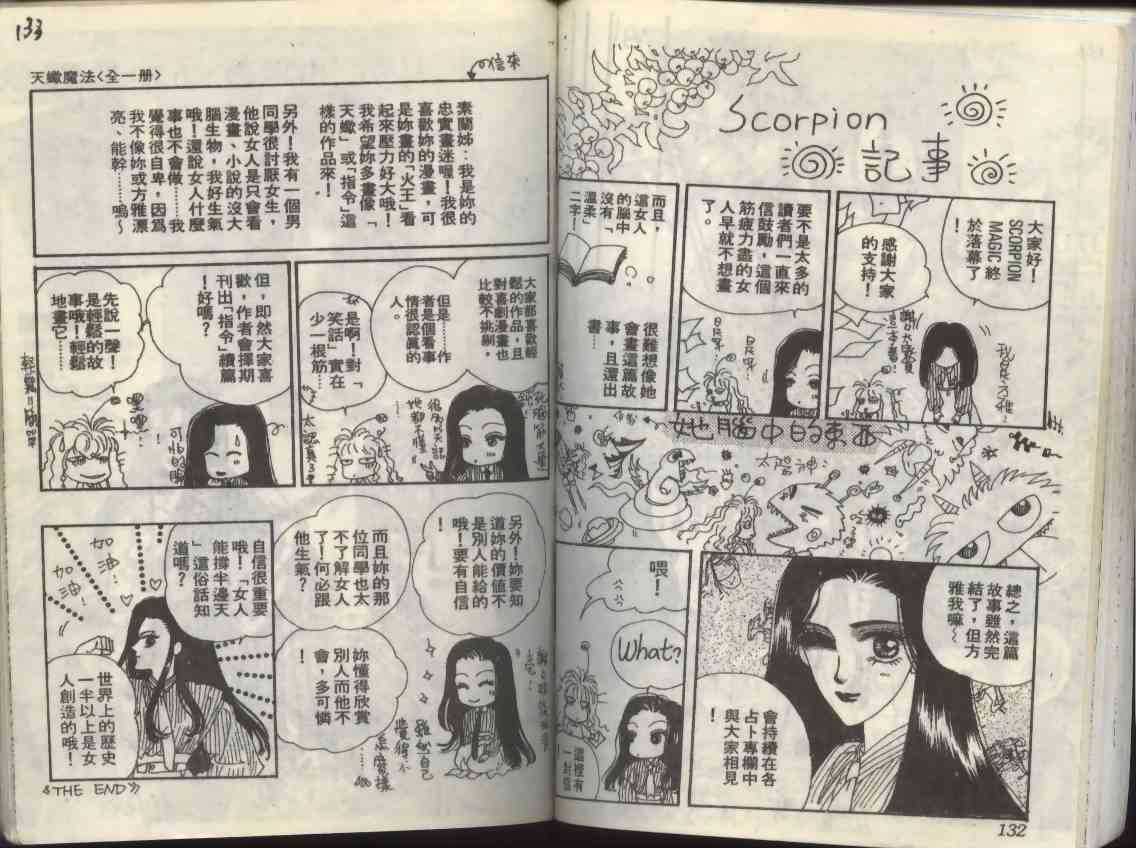 Scorpion
記事
大家好！
SCORPION
MAGIC 終
於落幕了
！
感謝大家
的支持！
要不是太多的
讀者們一直來
信鼓勵，這個
筋疲力盡的女
人早就不想畫
了。
而且，
這女人
的腦中
沒有「
溫柔」
二字！
很難想像她
會畫這篇故
事，且還出
書…
她腦中的東西
太陽神
總之，這篇
故事雖然完
結了，但方
雅我嘛～
會持續在各
占卜專欄中
與大家相見
！
喂！
What?
這裡有
一封信
132
133
天蠍魔法〈全一冊〉
信來
素蘭姊：我是妳的
忠實畫迷喔！我很
喜歡妳的漫畫，可
是妳畫的「火王」看
起來壓力好大哦！
我希望妳多畫像「
天蠍」或「指令」這
樣的作品來！
另外！我有一個男
同學很討厭女生，
他說女人是只會看
漫畫、小說的沒大
腦生物，我好生氣
哦！還說女人什麼
事也不會做……我
覺得很自卑，因為
我不像妳或方雅漂
亮、能幹……嗚～
大家都喜歡輕
鬆的作品，且
對喜劇漫畫也
比較不挑剔，
但是……作
者是個看事
情很認真的
人。
是啊！對「
笑話」實在
少一根筋…
太認真了
但，即然大家喜
歡，作者會擇期
刊出「指令」續篇
！好嗎？
先說一聲！
是輕鬆的故
事哦！輕鬆
地畫它……
嘿嘿…
另外！妳要知
道妳的價值不
是別人能給的
哦！要有自信
！
而且妳的那
位同學也太
不了解女人
了！何必跟
他生氣？
妳懂得欣賞
別人而他不
會，多可憐
！
雖然自己
覺得不
怎麼樣
自信很重要
哦！「女人
能撐半邊天
」這俗話知
道嗎？
加油！
加油！
世界上的歷史
一半以上是女
人創造的哦！
《THE END》